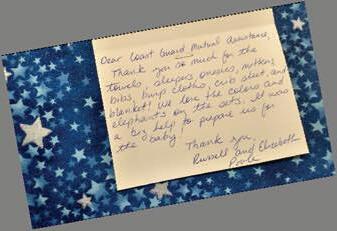 Dear Coast Guard Mutual Assistance,
Thank you so much for the
towels, sleepers, onesies, mittens,
bibs, burp cloths, crib sheet, and
blanket! We love the colors and
elephants on the sets. It was
a big help to prepare us for
the baby.
Thank you,
Russell and Elizabeth